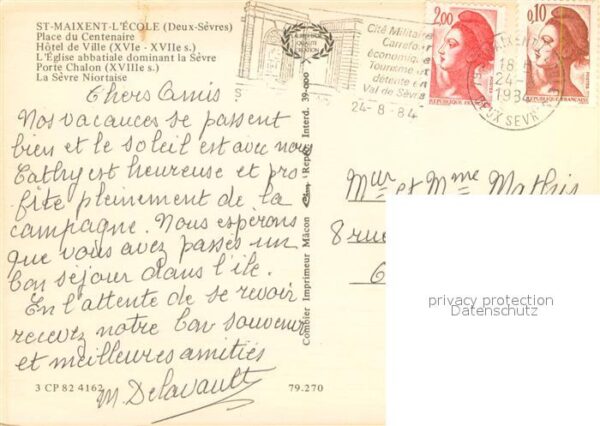 ST-MAIXENT-L'ÉCOLE (Deux-Sèvres)
Place du Centenaire
Hôtel de Ville (XVIe - XVIIe s.)
L'Église abbatiale dominant la Sèvre
Porte Chalon (XVIIIe s.)
La Sèvre Niortaise
Chers Amis
Nos vacances se passent
bien et le soleil est avec nous
Cathy est heureuse et pro
fite pleinement de la
campagne. Nous espérons
que vous avez passés un
bon séjour dans l'île.
En l'attente de se revoir
recevez notre bon souvenir
et meilleures amitiés
M. Delavault
3 CP 82 4162
79.270
Combier Imprimeur Mâcon Cim Repro. Interd. 39-000
Cité Militaire
Carrefour
économique
Tourisme et
détente en
Val de Sèvre
24-8-84
2,00
REPUBLIQUE FRANCAISE
0,10
REPUBLIQUE FRANCAISE
18 H
24-
1984
DEUX SEVRES
Mur et Mme Mathis
8 rue
privacy protection
Datenschutz